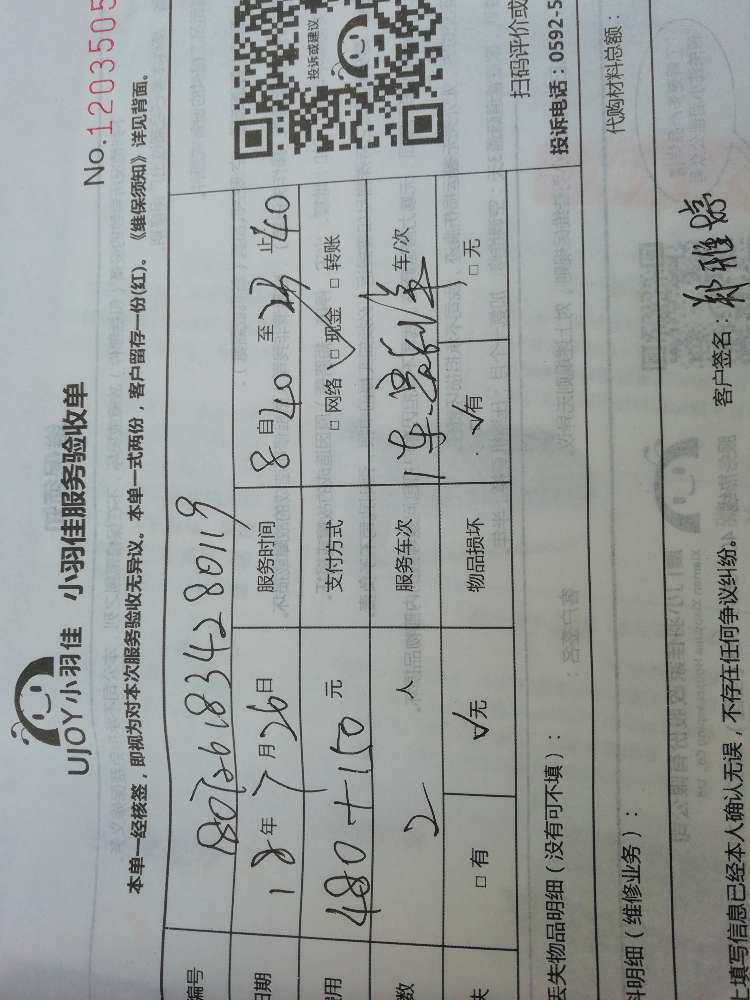 No.1203505
UJOY小羽佳 小羽佳服务验收单
本单一经核签，即视为对本次服务验收无异议。本单一式两份，客户留存一份(红)。《维保须知》详见背面。
编号
日期 18年7月26日 服务时间 8自40至 止40
费用 480+150元 支付方式 □网络 □现金 □转账
数 2人 服务车次 1车 车/次
失 □有 无 物品损坏 有 □无
投诉或建议
扫码评价或
投诉电话：0592-5
丢失物品明细（没有可不填）：
料明细（维修业务）：
代购材料总额：
上填写信息已经本人确认无误，不存在任何争议纠纷。
客户签名：